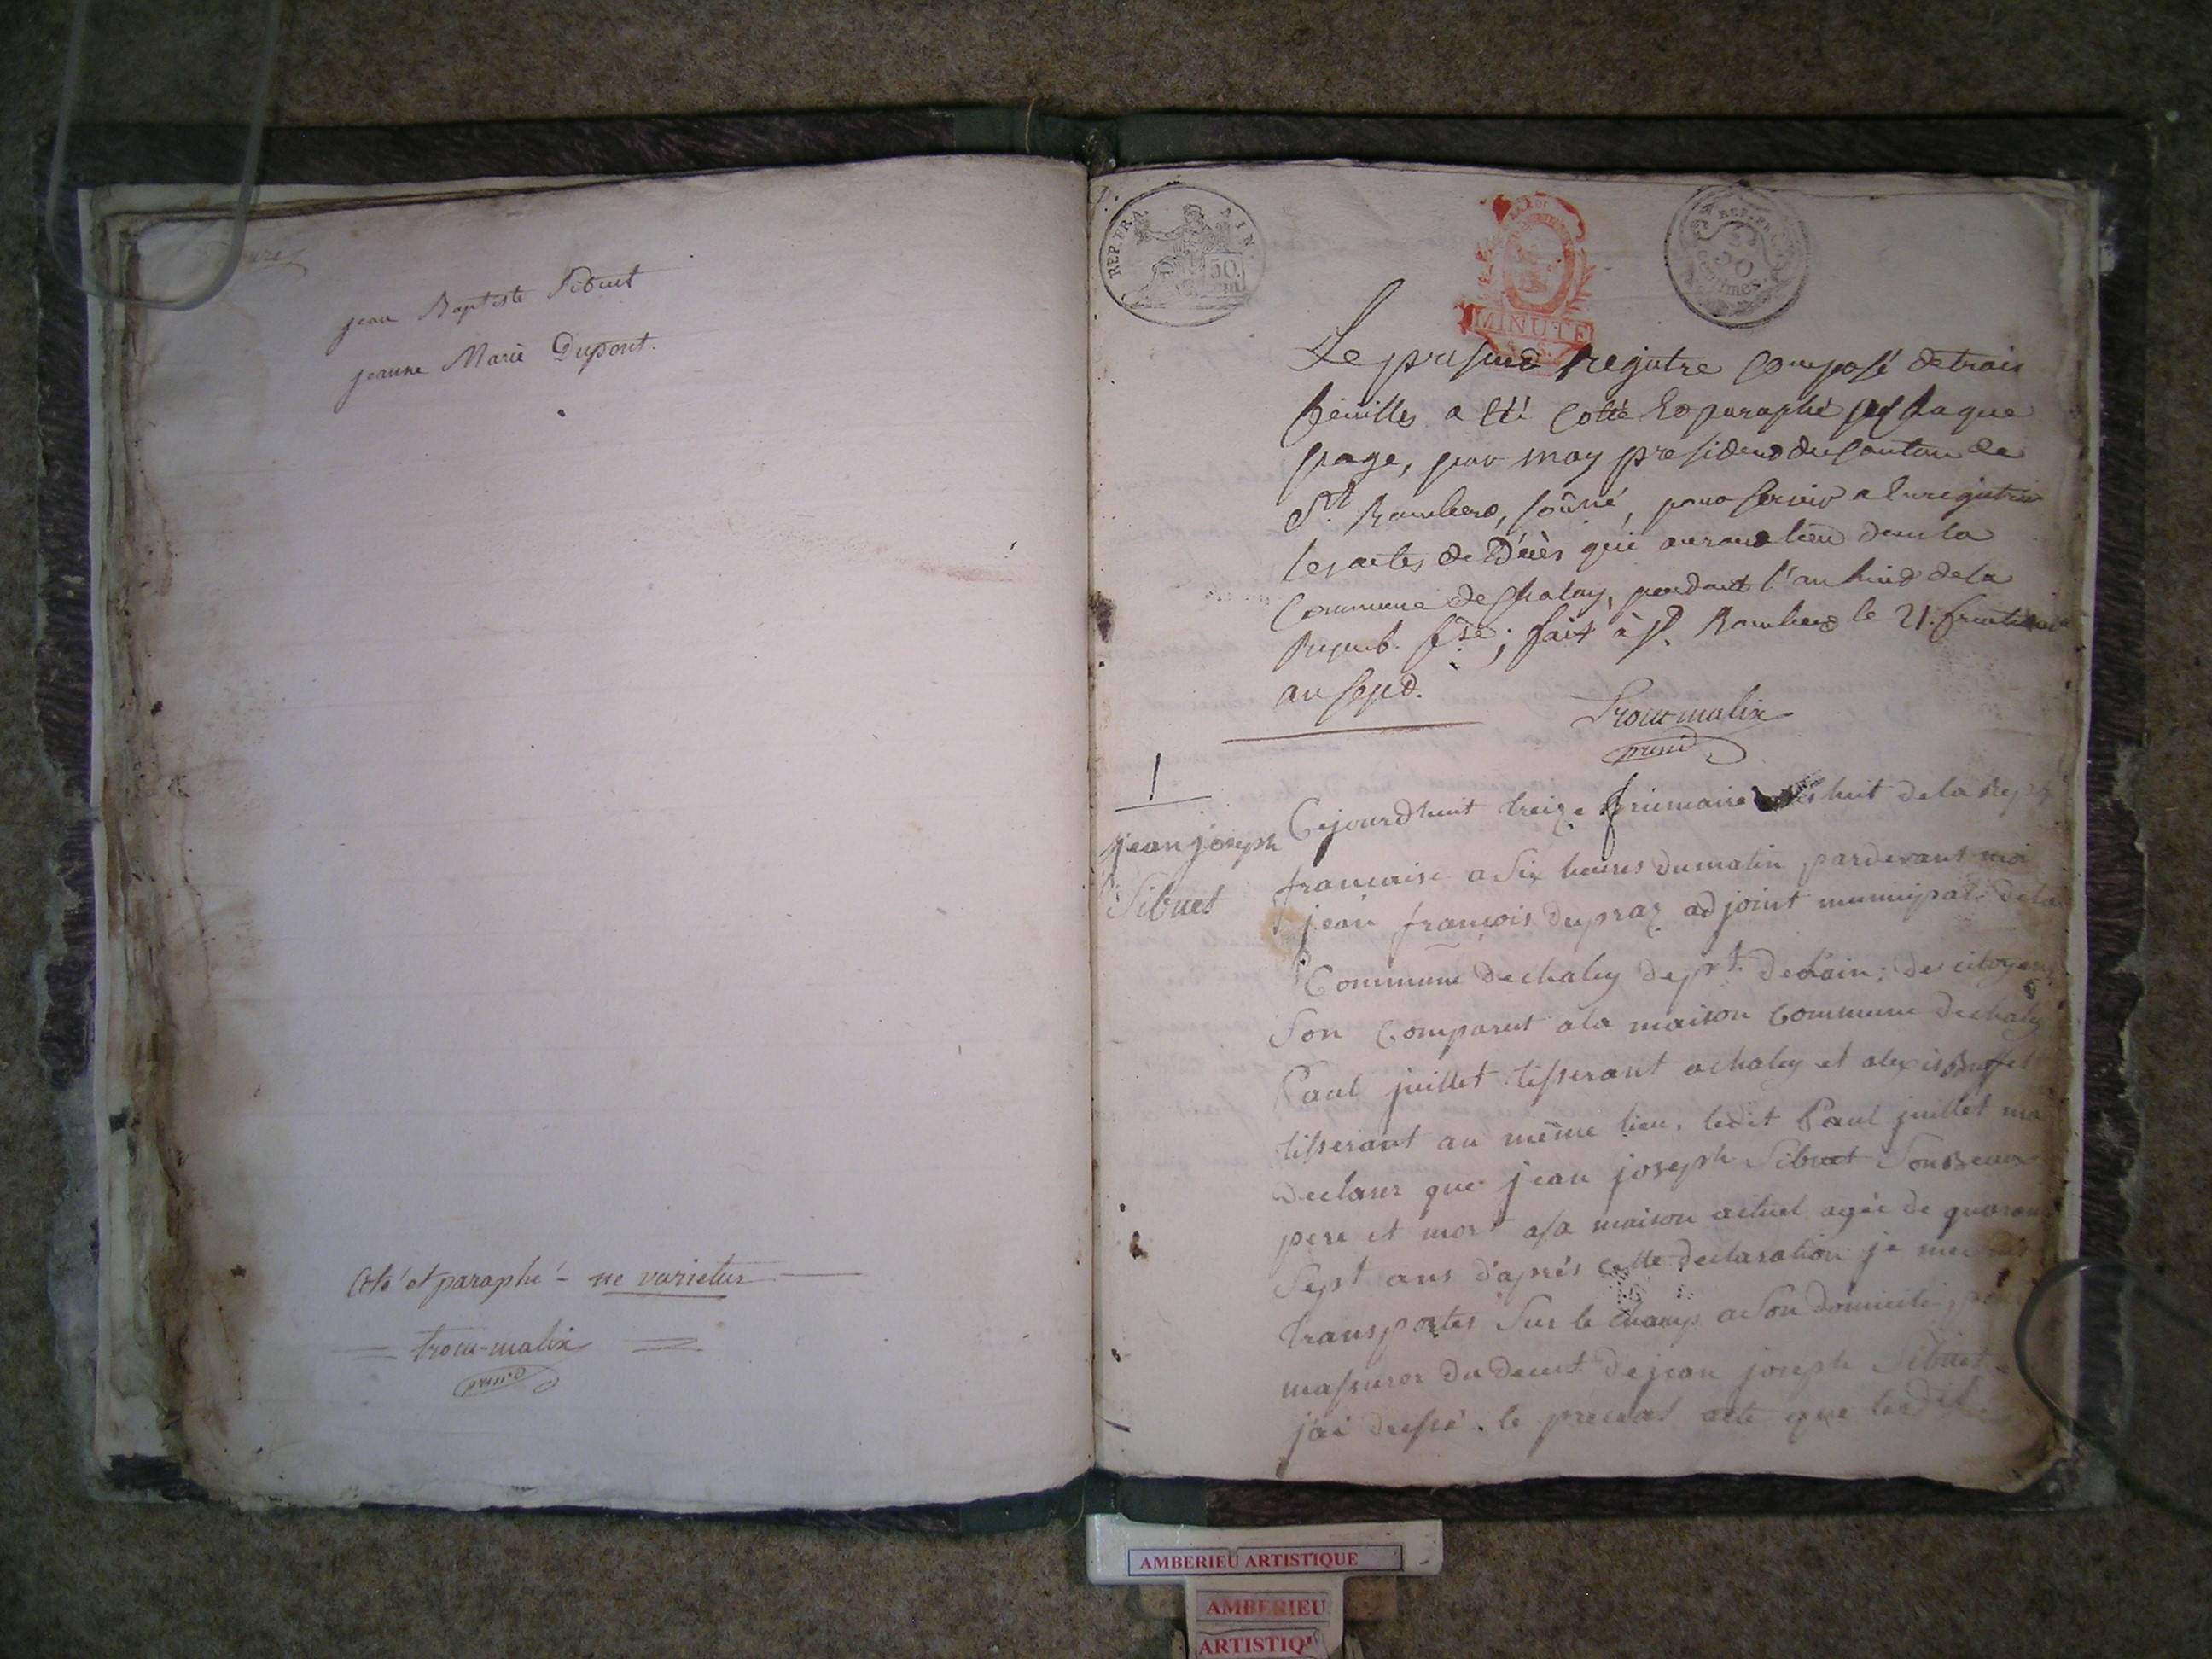 jean Baptiste Sibuet
jeanne Marie Dupont.
Coté et paraphé - ne varietur
trocu-malix
presid
REP. FRA. AIN.
50.
MINUTE
REP. FRA.
50
centimes
Le present registre composé de trois
feuilles a été cotté & paraphé sur chaque
page, par moy president du canton de
St. Rambert, soussné, pour servir a enregistrer
les actes de Décès qui auront lieu dans la
commune de Chaley, pendant l'an huit de la
Repub. fse; fait à St. Rambert le 21. fructidor
an sept.
trocu-malix
presid
1
jean joseph
Sibuet
Cejourdhuit treize frimaire huit de la Rep
francaise a Six heures du matin pardevant moi
jean francois dupraz adjoint municipal de la
Commune de chaley dept. de lain; de citoyens
Son Comparut a la maison Commune de chaley
Paul juillet tisserant a chaley et alexis Buffet
tisserant au même lieu. ledit Paul juillet ma
declarer que jean joseph Sibuet Son Beaux
pere et mort a sa maison actuel agée de quaran
Sept ans d'aprés cette declaration je me suis
transportes Sur le champ a Son domicile, pour
massurer du decest de jean joseph Sibuet
j'ai dressé. le present acte que lesdit
AMBERIEU ARTISTIQUE
AMBERIEU
ARTISTIQU